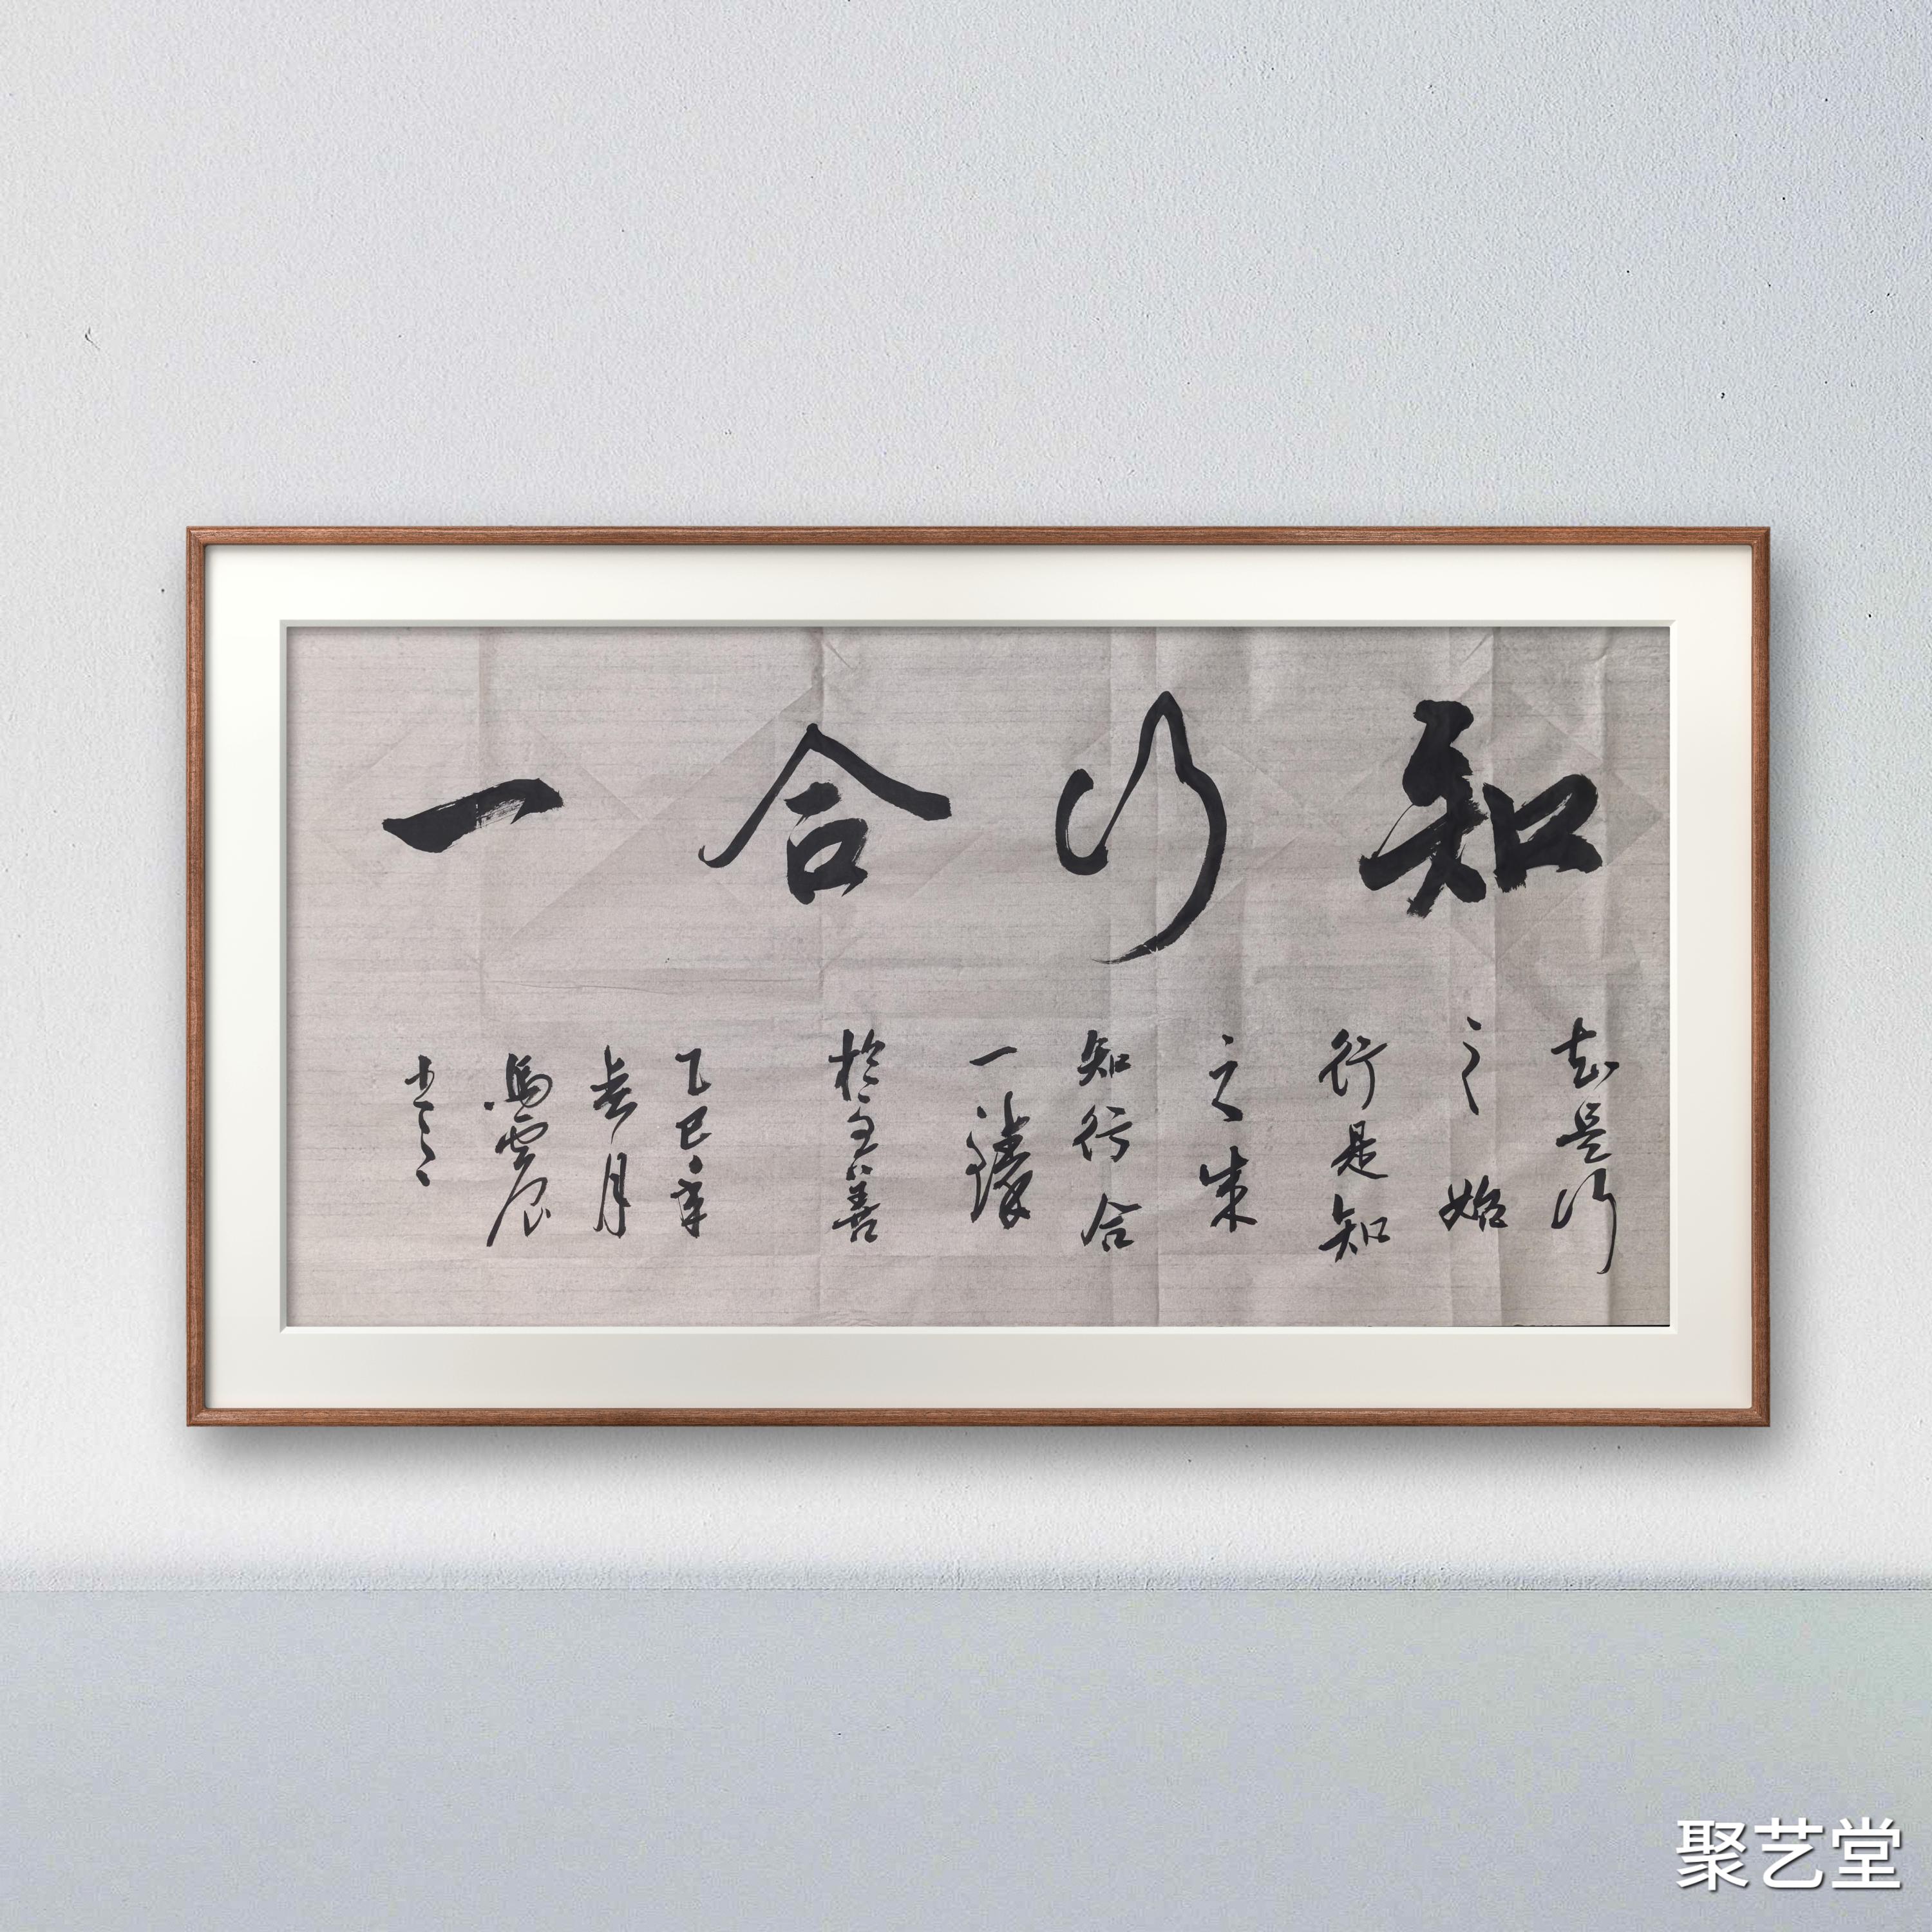 知行合一
知是行
之始
行是知
之
知行合
一
於至善
乙巳年
月
馬雲
聚艺堂